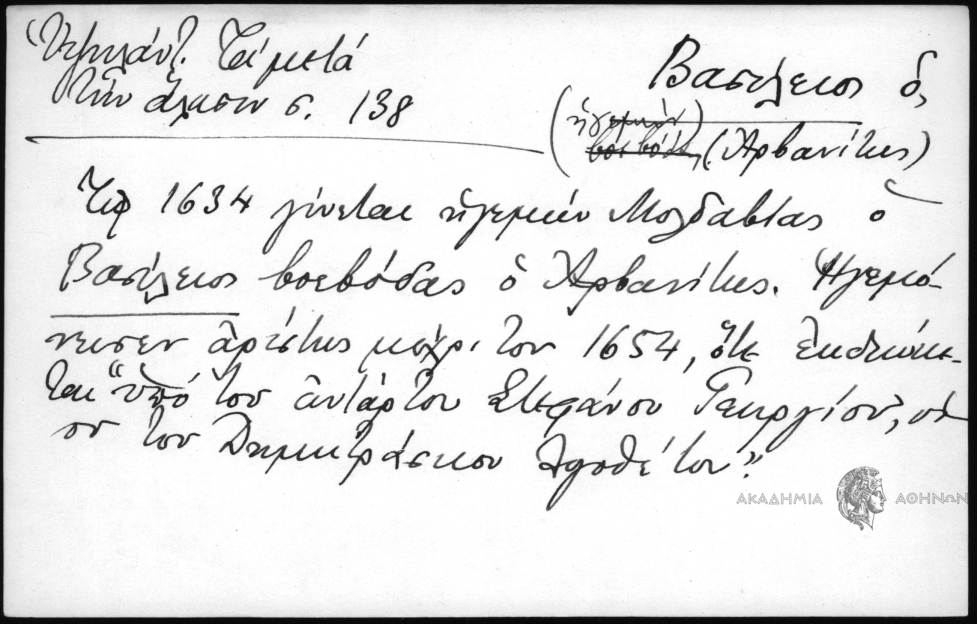 Ὑψηλάντ. Τά μετά
τήν ἅλωσιν σ. 138
Βασίλειος ὁ,
(ἡγεμών)
βοεβόδας (Ἀρβανίτης)
Τῷ 1634 γίνεται ἡγεμών Μολδαβίας ὁ
Βασίλειος βοεβόδας ὁ Ἀρβανίτης. Ἡγεμό-
νευσεν ἀρίστως μέχρι τοῦ 1654, ὅτε ἐκδιώκε-
ται "ὑπό τοῦ ἀντάρτου Στεφάνου Γεωργίου, υἱ
οῦ τοῦ Δημητράσκου λογοθέτου".
ΑΚΑΔΗΜΙΑ ΑΘΗΝΩΝ